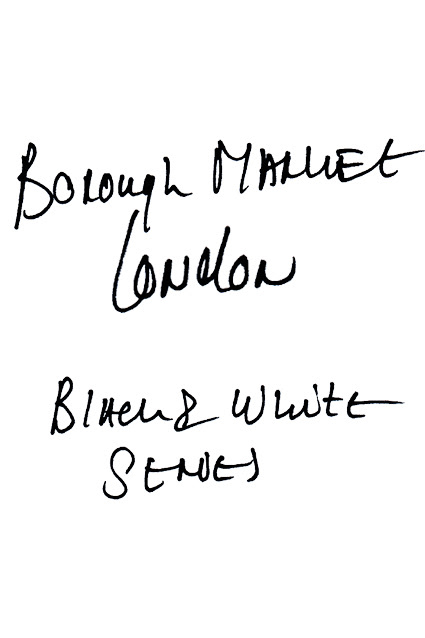 Borough Market
London
Black & White
Series